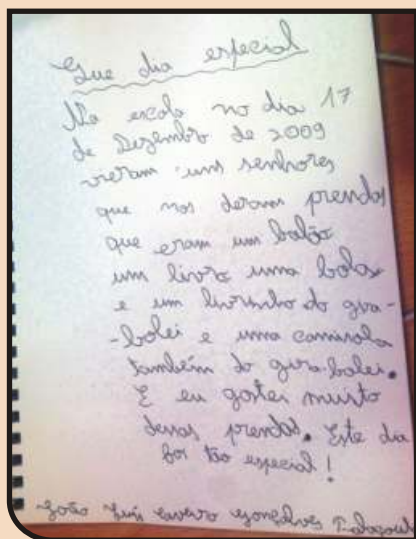 Que dia especial
Na escola no dia 17
de Dezembro de 2009
vieram uns senhores
que nos deram prendas
que eram um balão
um livro uma bolas
e um livrinho do gira-
-bolei e uma camisola
também do gira-bolei.
E eu gostei muito
dessas prendas. Este dia
foi tão especial!
João Luís Gonçalves